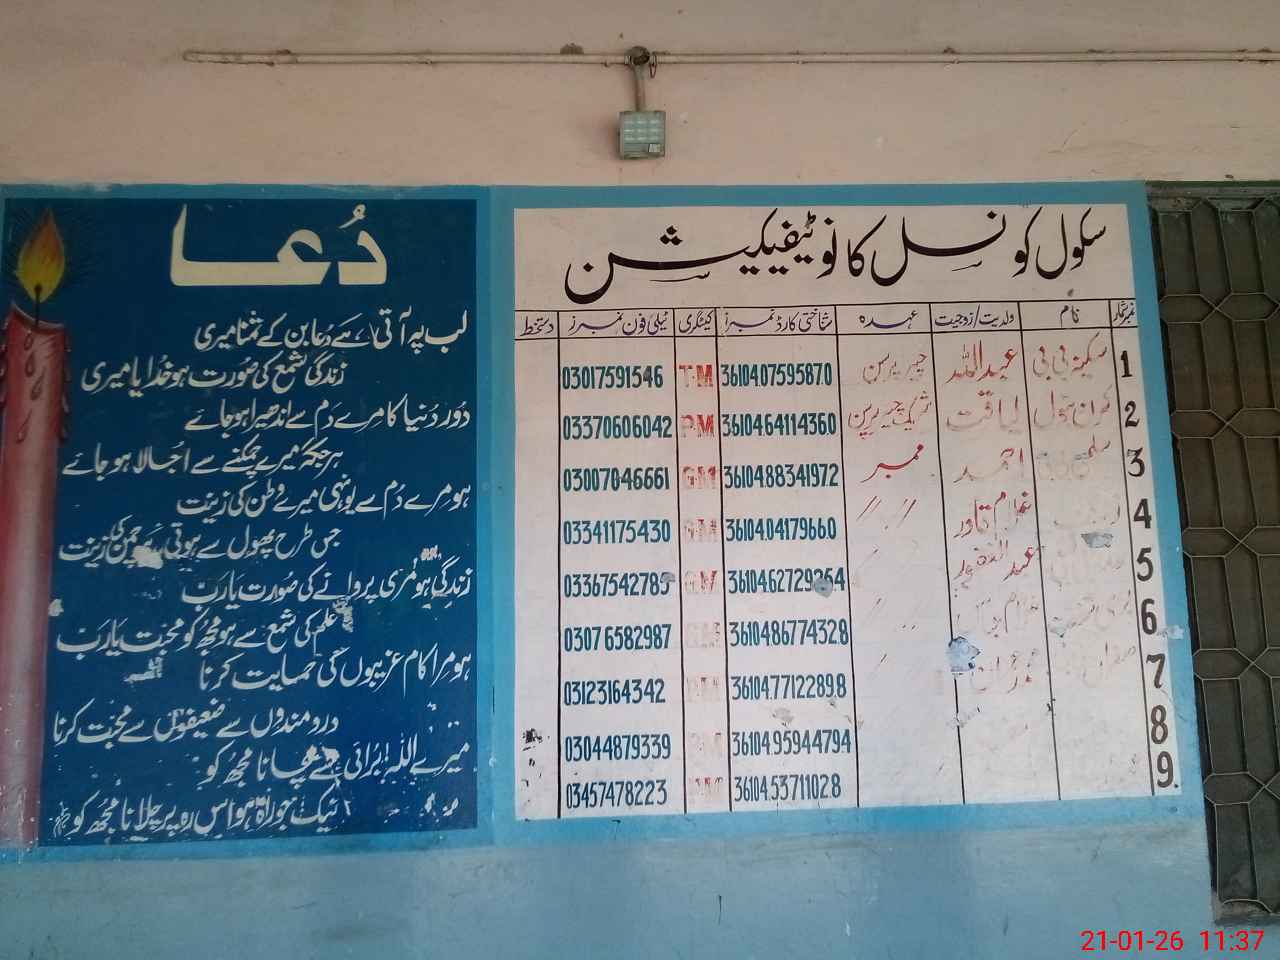 دُعا
لب پہ آتی ہے دُعا بن کے تمنا میری
زندگی شمع کی صُورت ہو خُدایا میری
دُور دُنیا کا مرے دَم سے اندھیرا ہو جائے
ہر جگہ میرے چمکنے سے اُجالا ہو جائے
ہو مرے دَم سے یونہی میرے وطن کی زینت
جس طرح پھول سے ہوتی ہے چمن کی زینت
زندگی ہو مری پروانے کی صُورت یا رَب
علم کی شمع سے ہو مجھ کو محبت یا رَب
ہو مرا کام غریبوں کی حمایت کرنا
درد مندوں سے ضعیفوں سے محبت کرنا
میرے اللہ بُرائی سے بچانا مجھ کو
نیک جو راہ ہو اس رہ پر چلانا مجھ کو
سکول کونسل کا نوٹیفیکیشن
نمبر شمار نام ولدیت/زوجیت عہدہ شناختی کارڈ نمبرز کیٹگری ٹیلی فون نمبرز دستخط
1 سکینہ بی بی عبداللہ چیئر پرسن 36104.0759587.0 T.M 03017591546
2 لیاقت شریک چیئر پرسن 36104.6411436.0 P.M 03370606042
3 احمد ممبر 36104.8834197.2 G.M 03007046661
4 غلام قادر // // 36104.0417966.0 G.M 03341175430
5 عبدالغفور G.M 03367542785
6 // // 36104.8677432.8 G.M 03076582987
7 // // 36104.7712289.8 03123164342
8 36104.9594479.4 03044879339
9 36104.5371102.8 03457478223
21-01-26 11:37